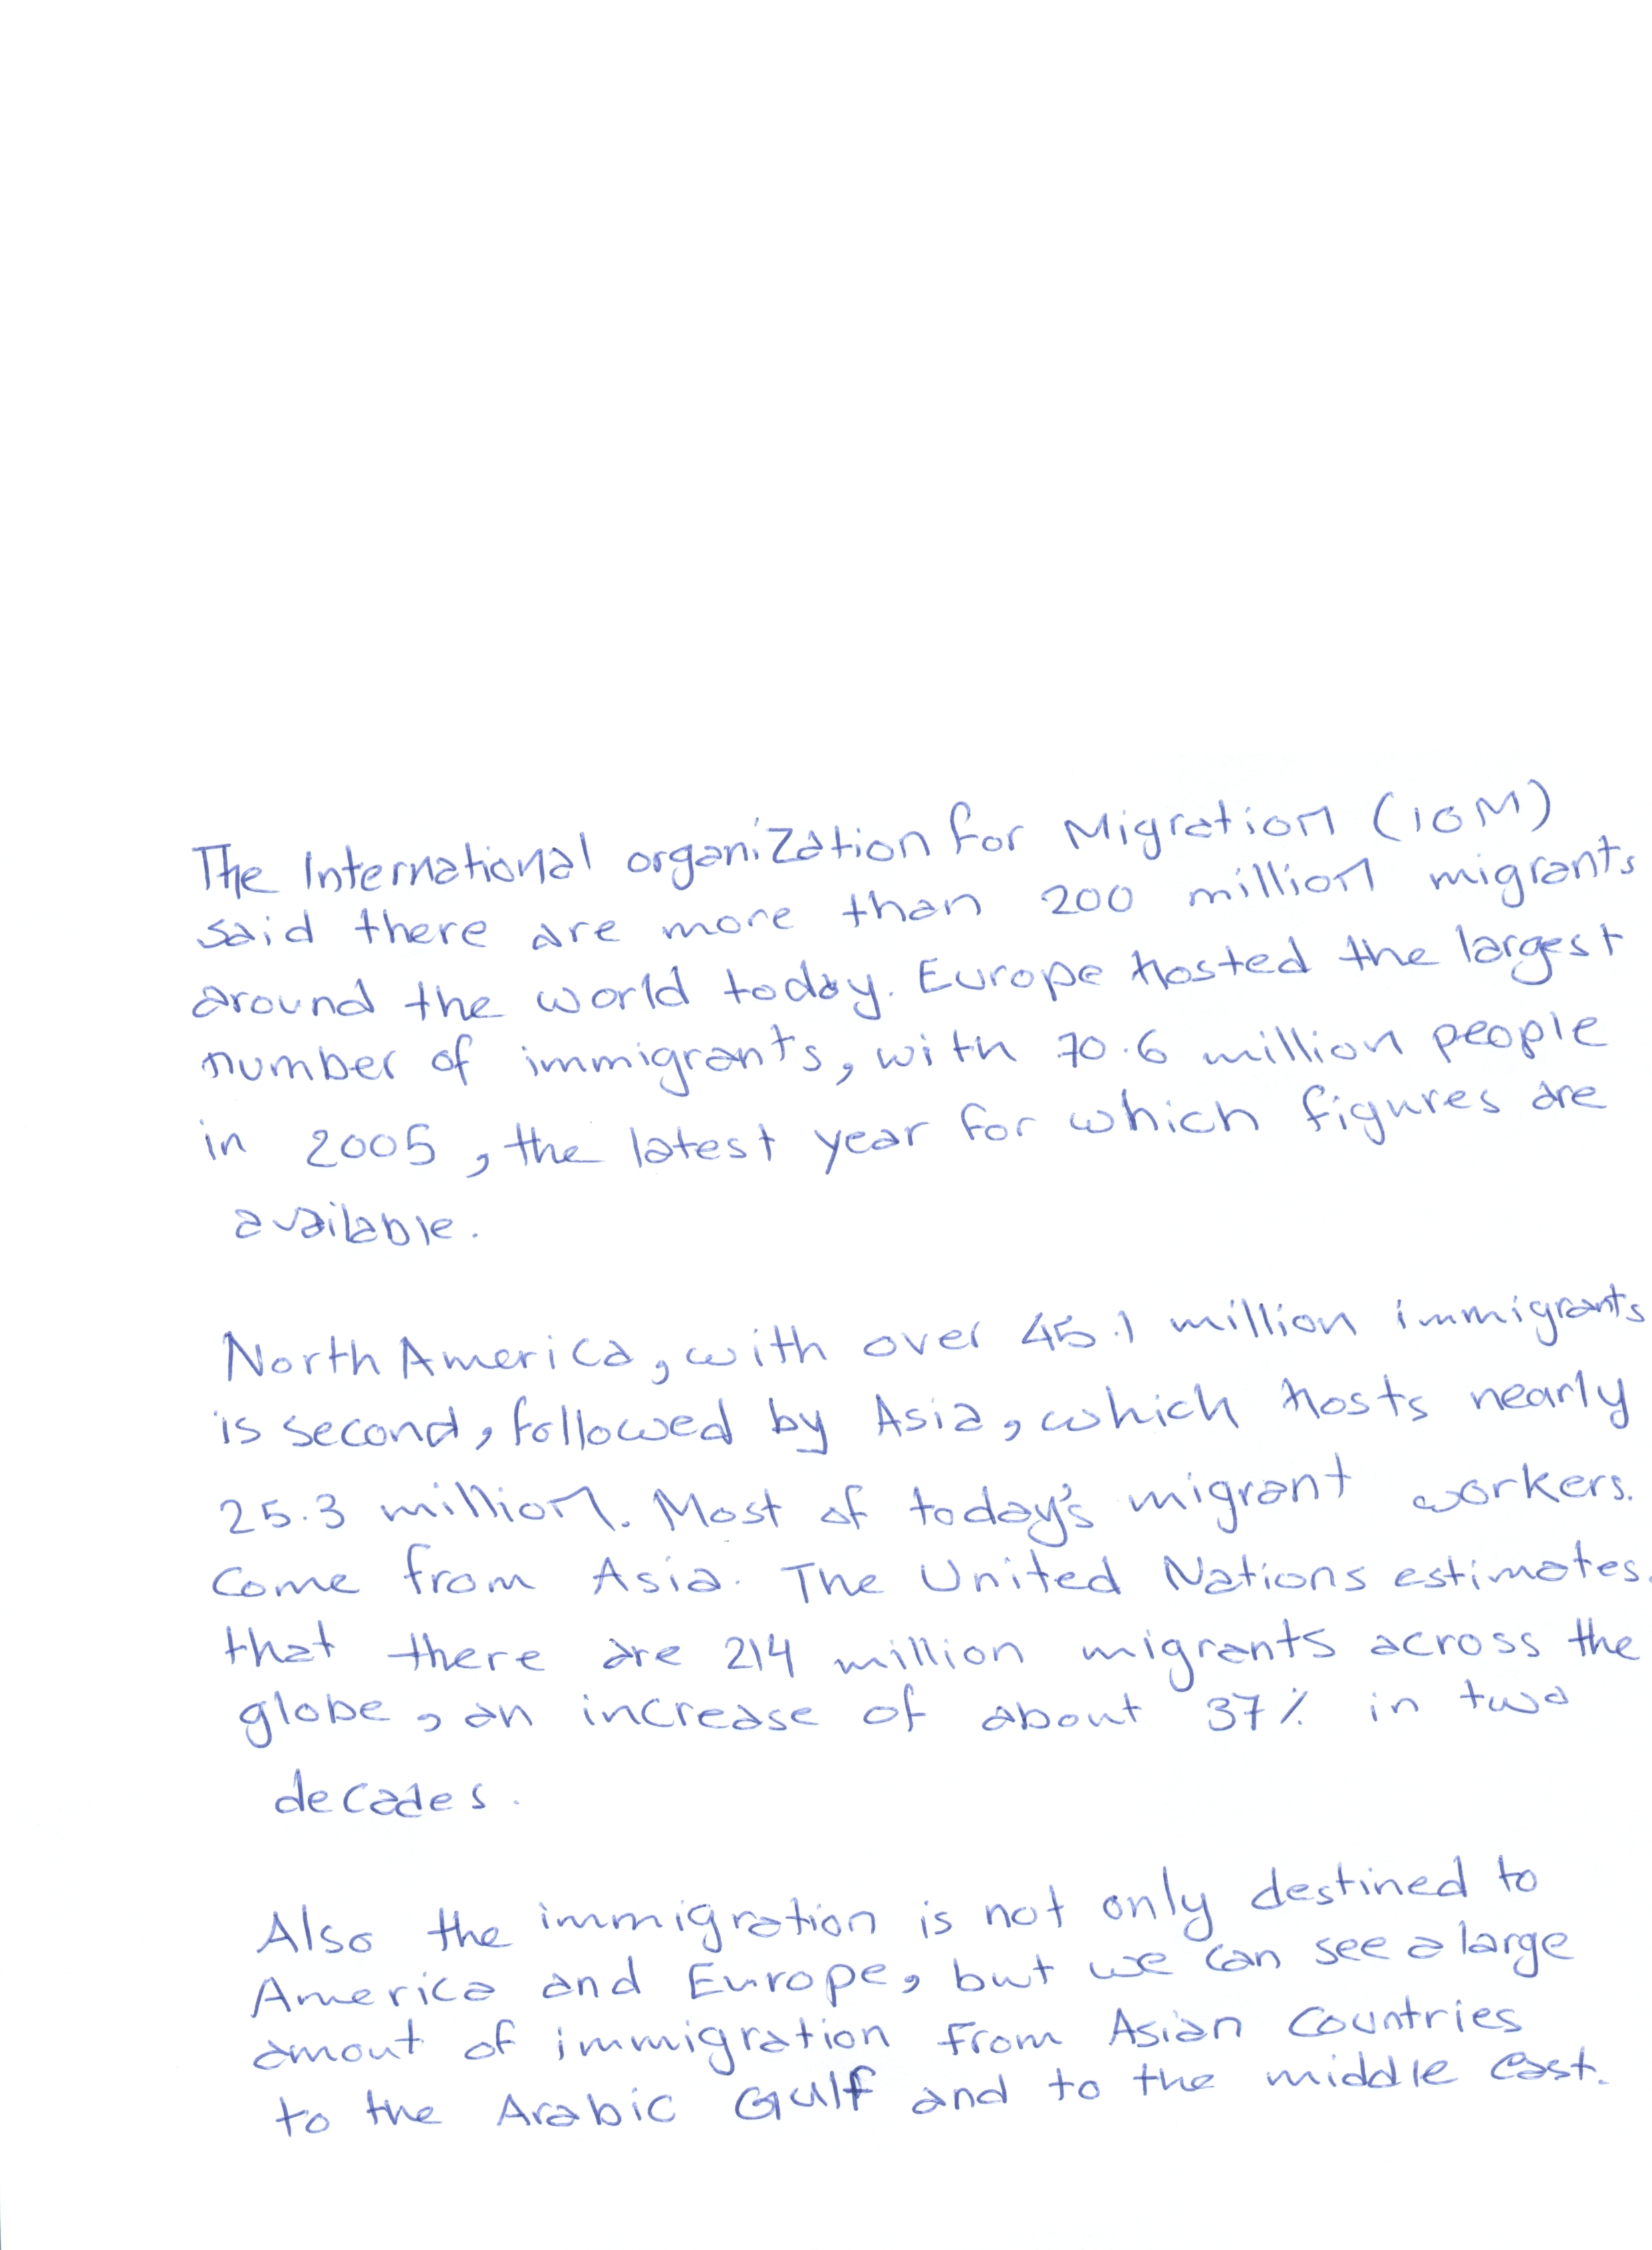 The International organization for Migration (IOM)
said there are more than 200 million migrants
around the world today. Europe hosted the largest
number of immigrants, with 70.6 million people
in 2005, the latest year for which figures are
available.
North America, with over 45.1 million immigrants
is second, followed by Asia, which hosts nearly
25.3 million. Most of today's migrant workers.
Come from Asia. The United Nations estimates.
that there are 214 million migrants across the
globe, an increase of about 37% in two
decades.
Also the immigration is not only destined to
America and Europe, but we can see a large
amout of immigration From Asian Countries
to the Arabic Gulf and to the middle East.